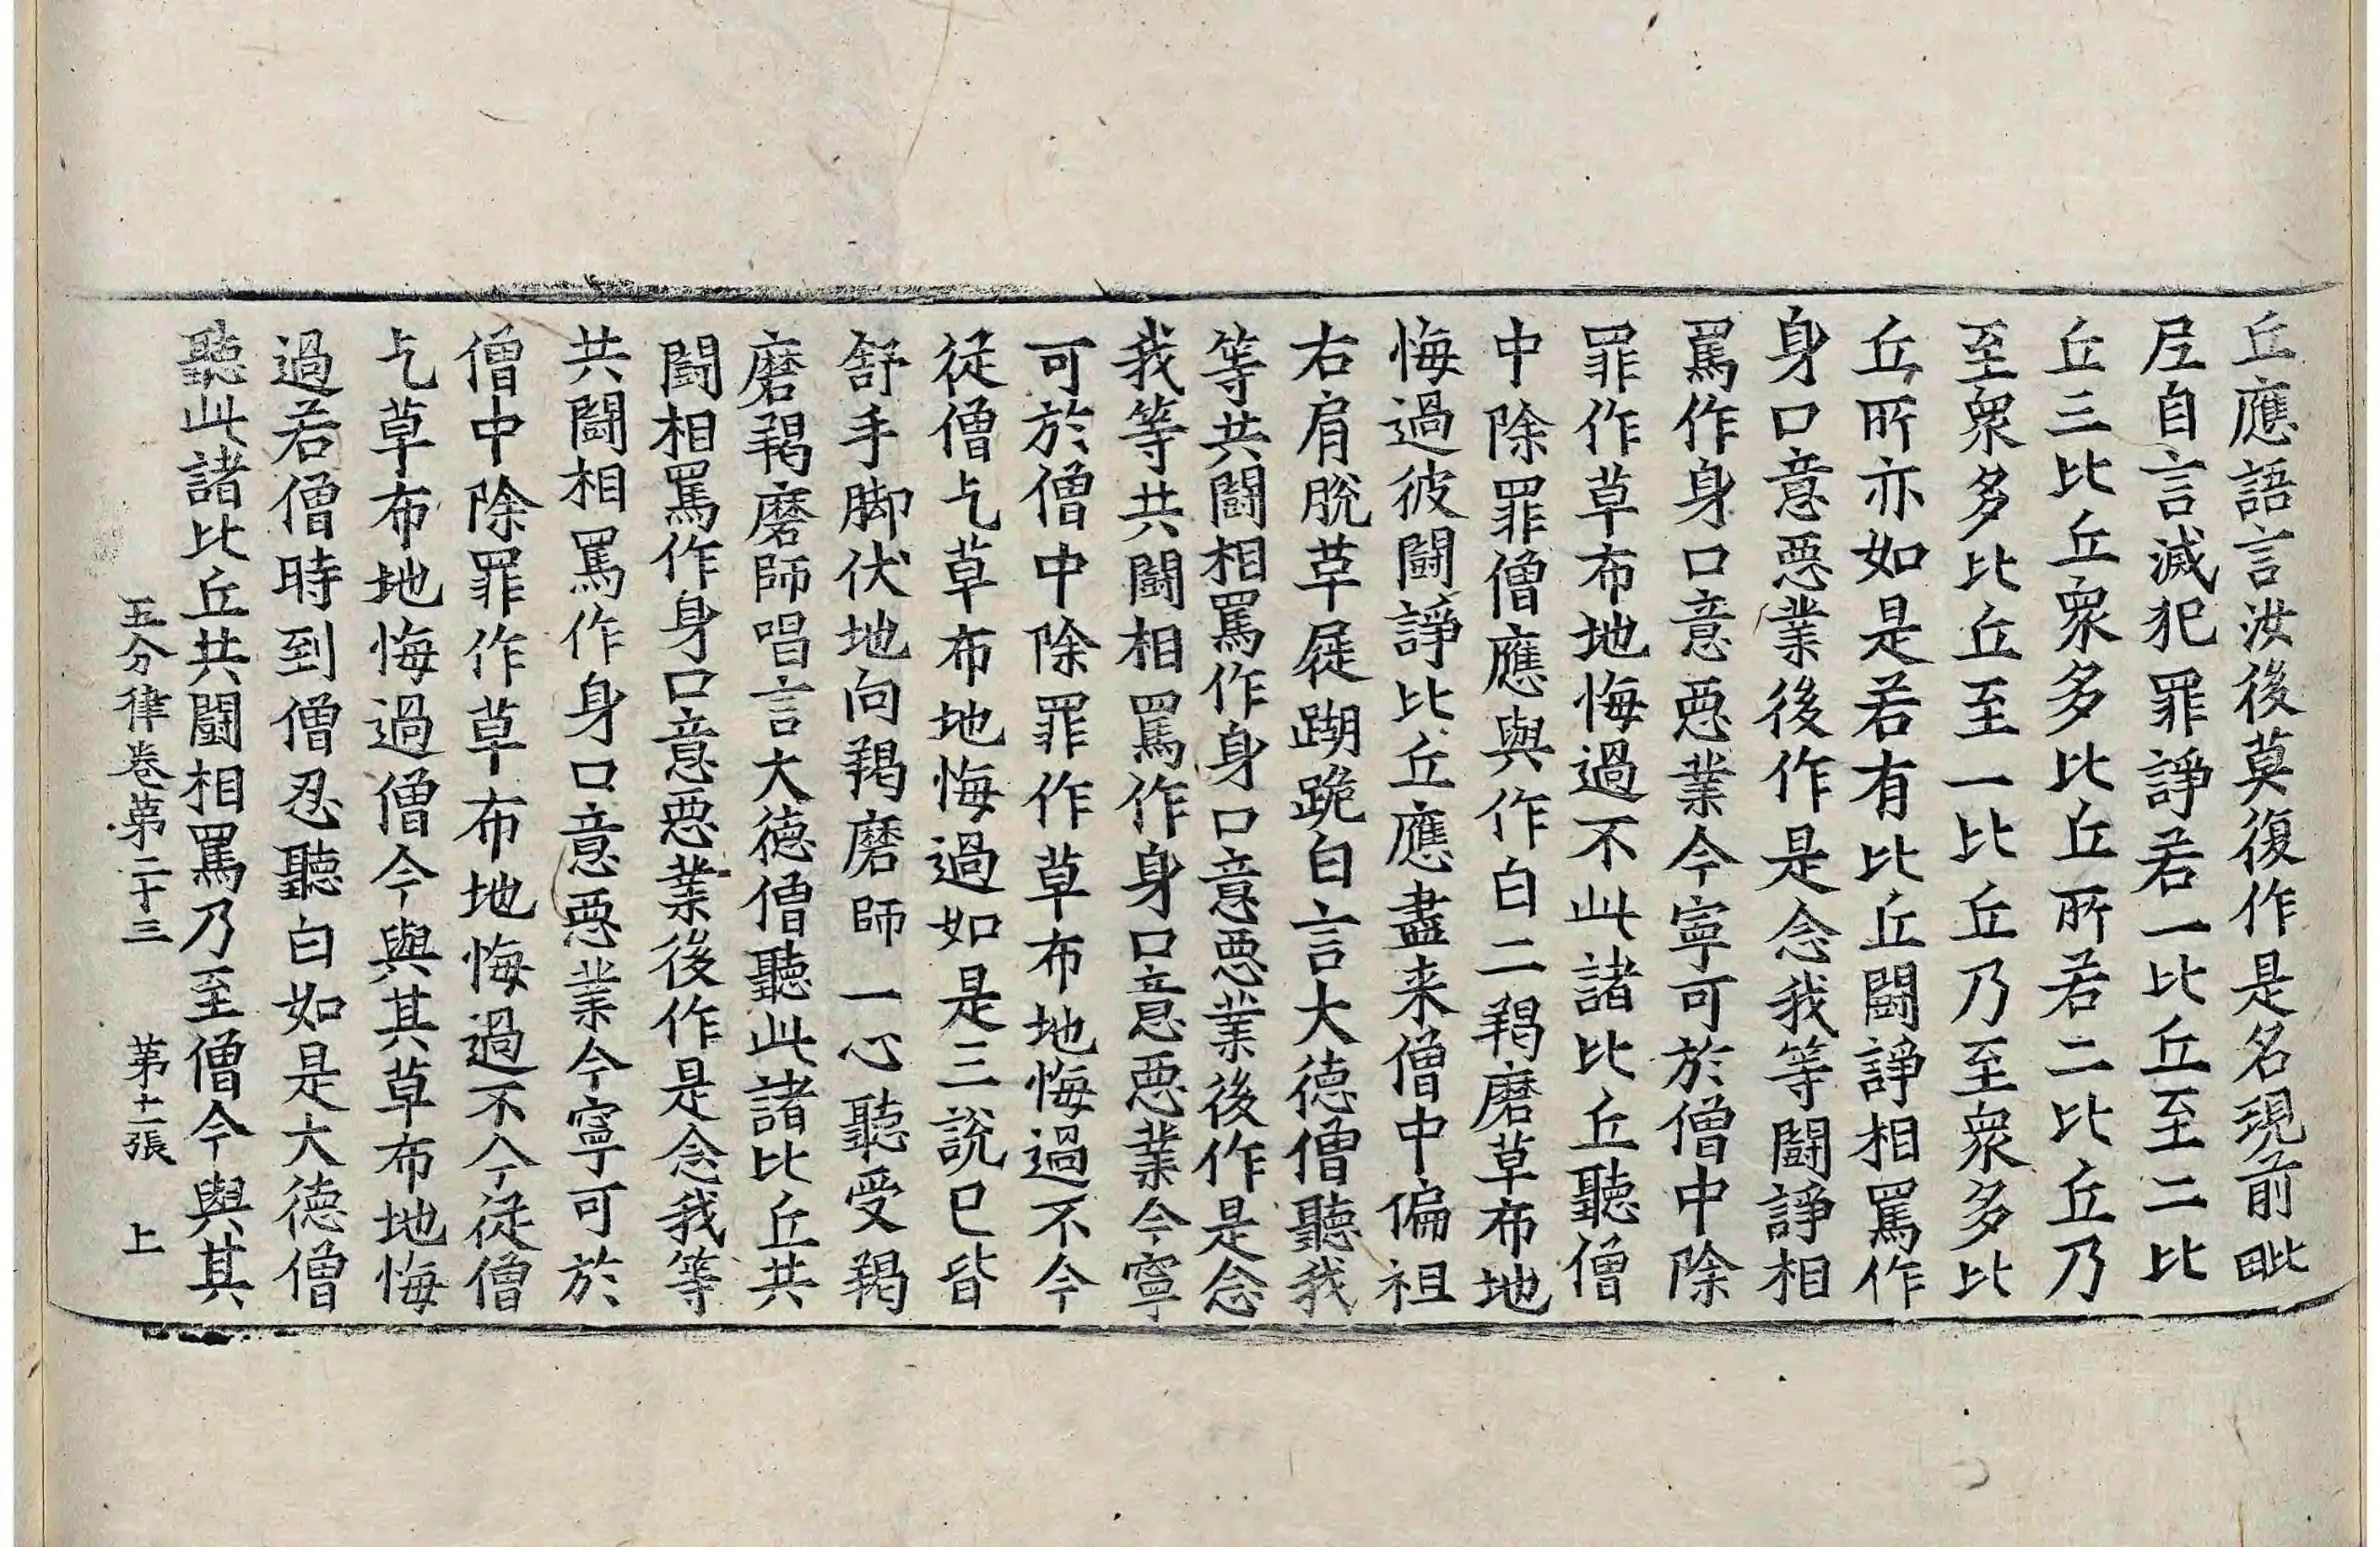 丘應語言汝後莫復作是名現前毗
𡰱自言滅犯罪諍若一比丘至二比
丘三比丘衆多比丘所若二比丘乃
至衆多比丘至一比丘乃至衆多比
丘所亦如是若有比丘鬪諍相罵作
身口意惡業後作是念我等鬪諍相
罵作身口意惡業今寧可於僧中除
罪作草布地悔過不此諸比丘聽僧
中除罪僧應與作白二羯磨草布地
悔過彼鬪諍比丘應盡来僧中偏袒
右肩脫革屣䠒跪白言大德僧聽我
等共鬪相罵作身口意惡業後作是念
我等共鬪相罵作身口意惡業今寧
可於僧中除罪作草布地悔過不今
從僧乞草布地悔過如是三說已皆
舒手脚伏地向羯磨師一心聽受羯
磨羯磨師唱言大德僧聽此諸比丘共
鬪相罵作身口意惡業後作是念我等
共鬪相罵作身口意惡業今寧可於
僧中除罪作草布地悔過不今從僧
乞草布地悔過僧今與其草布地悔
過若僧時到僧忍聽白如是大德僧
聽此諸比丘共鬪相罵乃至僧今與其
五分律卷第二十三 第十二張 上